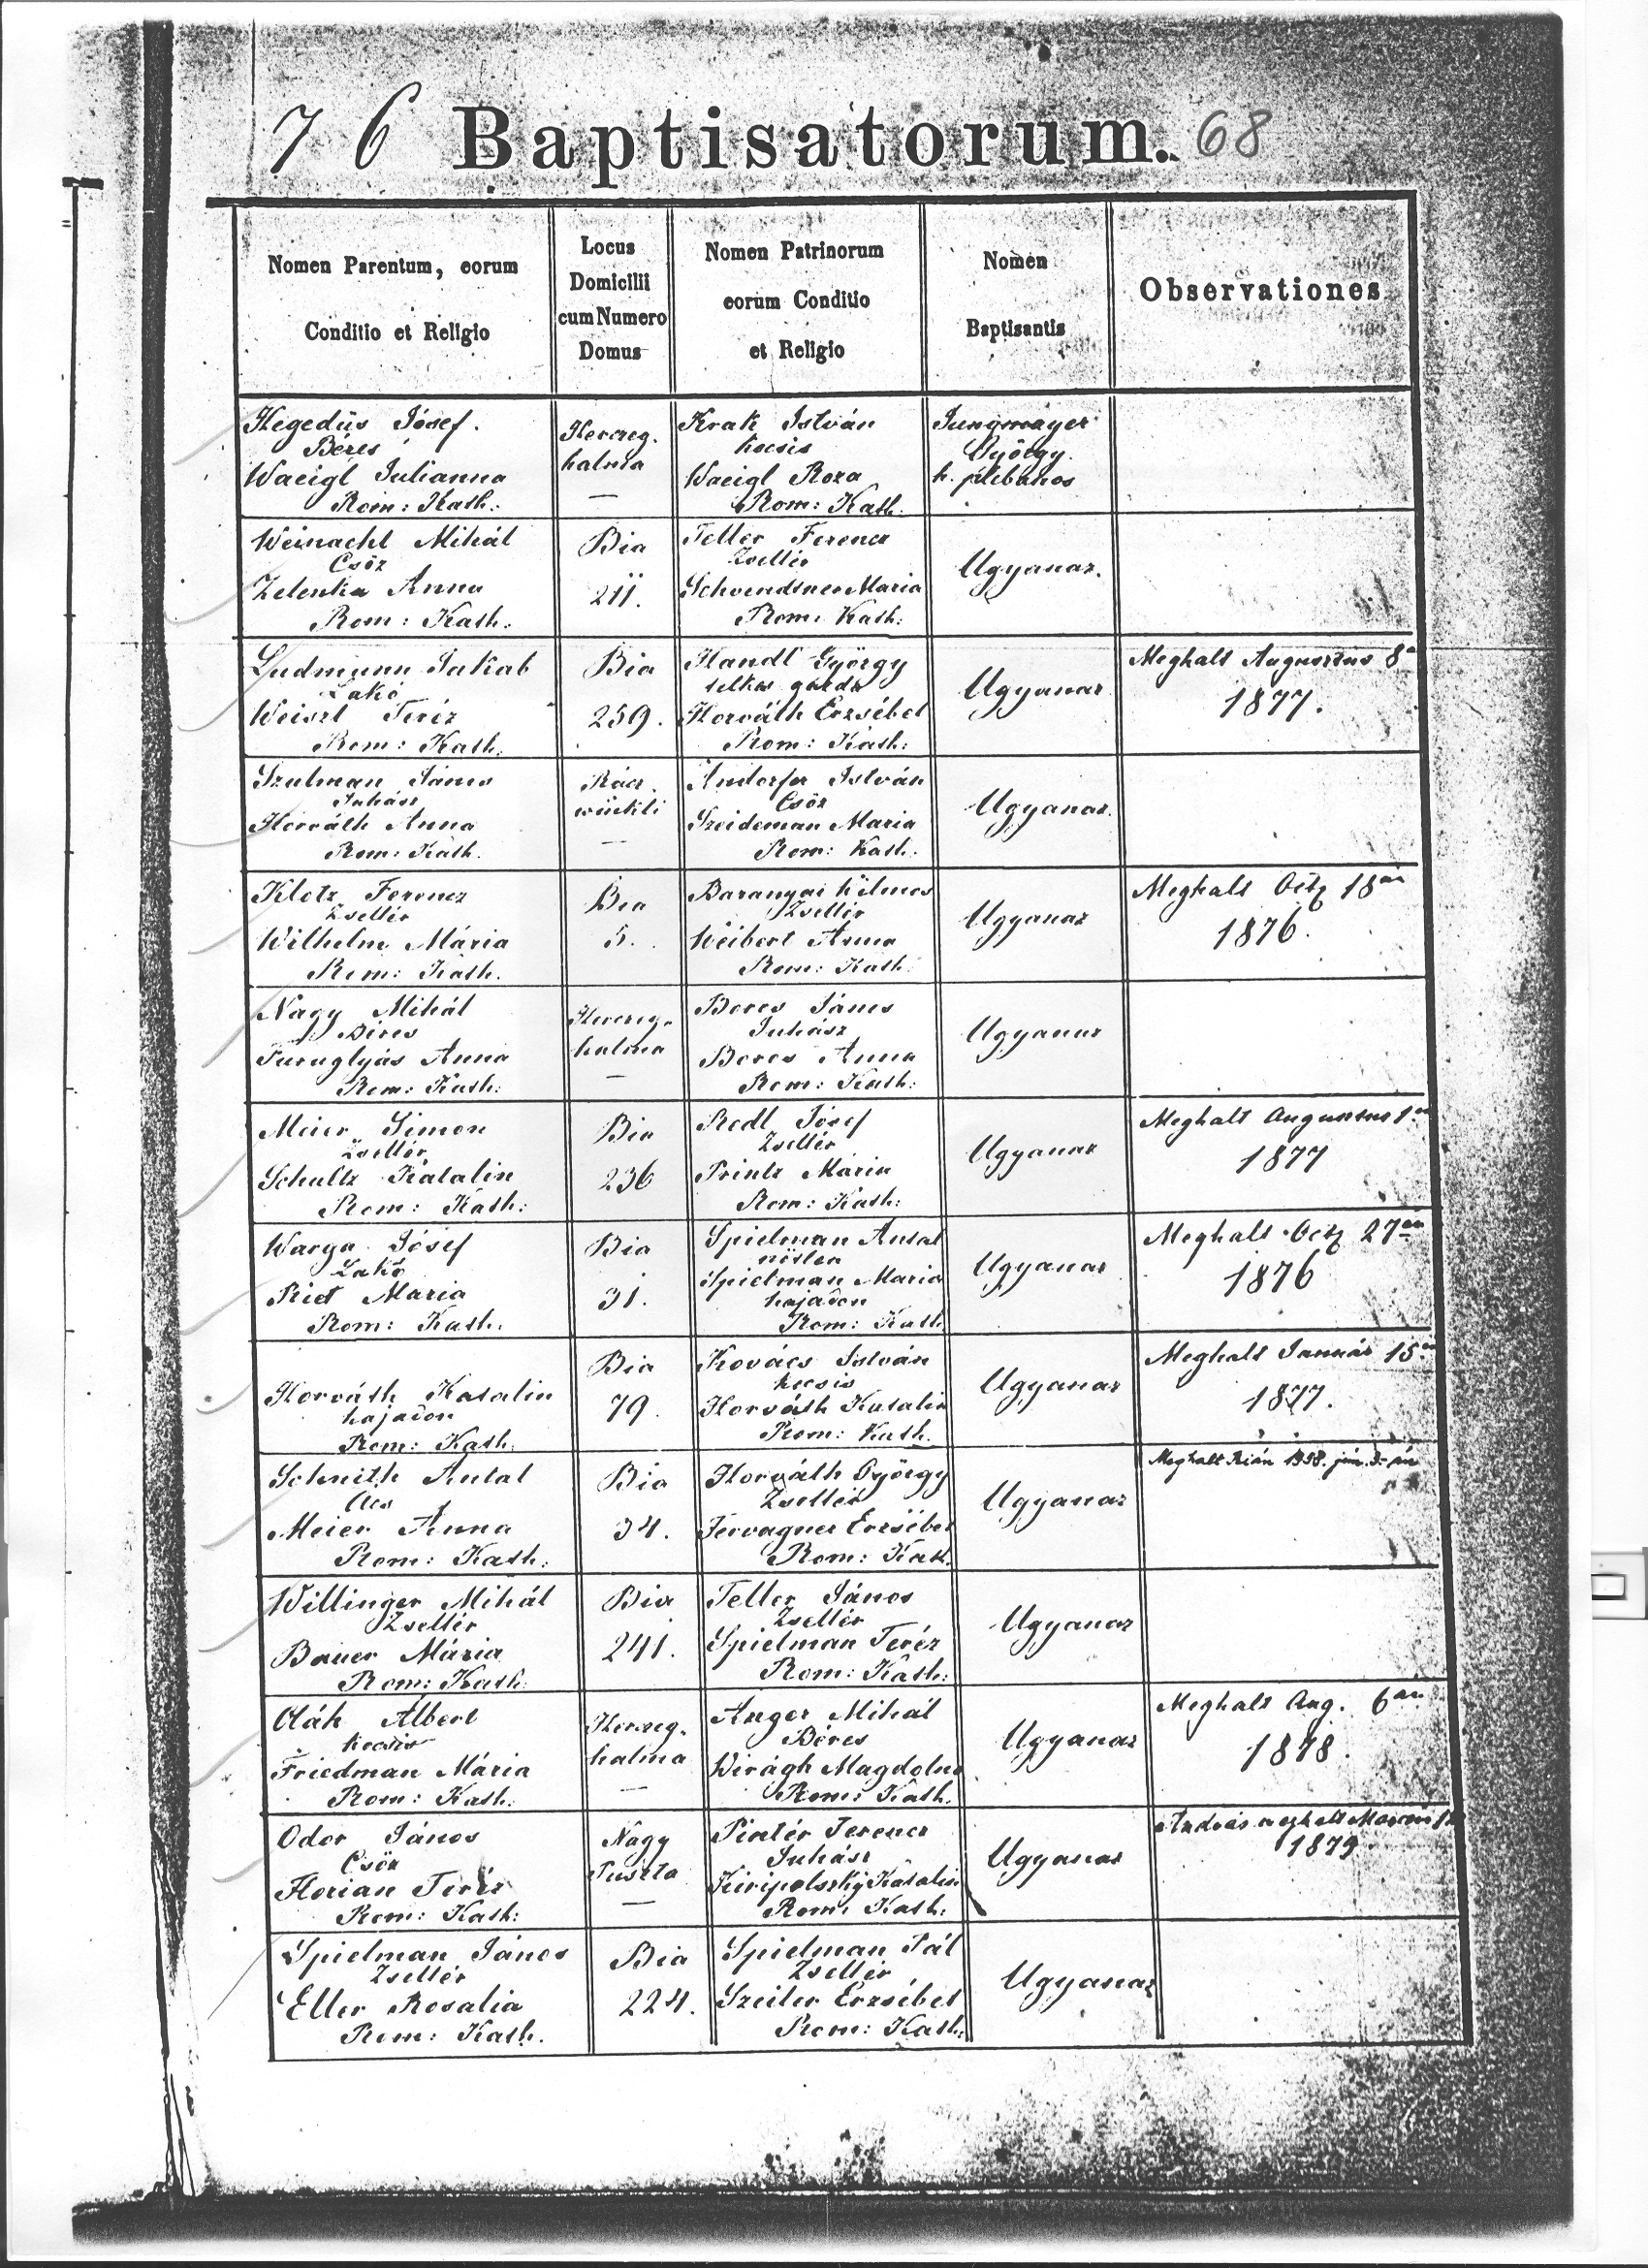 76 Baptisatorum. 68
Nomen Parentum, eorum
Conditio et Religio
Locus
Domicilii
cum Numero
Domus
Nomen Patrinorum
eorum Conditio
et Religio
Nomen
Baptisantis
Observationes
Hegedüs Jósef.
Béres
Waeigl Julianna
Rom: Kath.
Herczeg.
halma
—
Krak István
kocsis
Waeigl Roza
Rom: Kath.
Jungmayer
György.
h. plébános
Weinachl Mihál
Csöz
Zelenka Anna
Rom: Kath.
Bia
211.
Teller Ferencz
Zsellér
Maria
Rom: Kath:
Ugyanaz.
Ludmann Jakab
Lakó
Weiszl Teréz
Rom: Kath:
Bia
259.
Handl György
telkes gazda
Horváth Erzsébet
Rom: Kath:
Ugyanaz
Meghalt Augusztus 8án
1877.
Szulman János
Juhász
Horváth Anna
Rom: Kath.
Rácz
—
Andorfer István
Csöz
Szeideman Maria
Rom: Kath.
Ugyanaz.
Klotz Ferencz
Zsellér
Wilhelm Mária
Rom: Kath.
Bia
5.
Baranyai
Zsellér
Weibert Anna
Rom: Kath
Ugyanaz
Meghalt Octb 18án
1876.
Nagy Mihál
Béres
Furuglyás Anna
Rom: Kath:
Herczeg.
halma
—
Beres János
Juhász
Beres Anna
Rom: Kath:
Ugyanaz
Meier Simon
Zsellér
Schultz Katalin
Rom: Kath:
Bia
236
Redl Jósef
Zsellér
Printz Mária
Rom: Kath:
Ugyanaz
Meghalt Augusztus 1én
1877
Warga Jósef
Lakó
Riet Maria
Rom: Kath:
Bia
31.
Spielman Antal
nőtlen
Spielman Maria
hajadon
Rom: Kath
Ugyanaz
Meghalt Octb 27én
1876
Horváth Katalin
hajadon
Rom: Kath.
Bia
79.
Kovács István
kocsis
Horváth Katalin
Rom: Kath.
Ugyanaz
Meghalt Január 15én
1877.
Schmith Antal
Ács
Meier Anna
Rom: Kath:
Bia
34.
Horváth György
Zsellér
Tervagner Erzsébet
Rom: Kath.
Ugyanaz
Meghalt Bián 1958. jún. 3-án
Willinger Mihál
Zsellér
Bauer Mária
Rom: Kath.
Bia
241.
Teller János
Zsellér
Spielman Teréz
Rom: Kath:
Ugyanaz
Oláh Albert
kocsis
Friedman Mária
Rom: Kath:
Herczeg.
halma
—
Anger Mihál
Béres
Wirágh Magdolna
Rom: Kath.
Ugyanaz
Meghalt Aug. 6án
1878.
Odor János
Csöz
Florian Teréz
Rom: Kath:
Nagy
Puszta
—
Pintér Ferencz
Juhász
Katalin
Rom: Kath:
Ugyanaz
András meghalt
1879
Spielman János
Zsellér
Eller Rosalia
Rom: Kath.
Bia
224.
Spielman Pál
Zsellér
Szeiler Erzsébet
Rom: Kath:
Ugyanaz